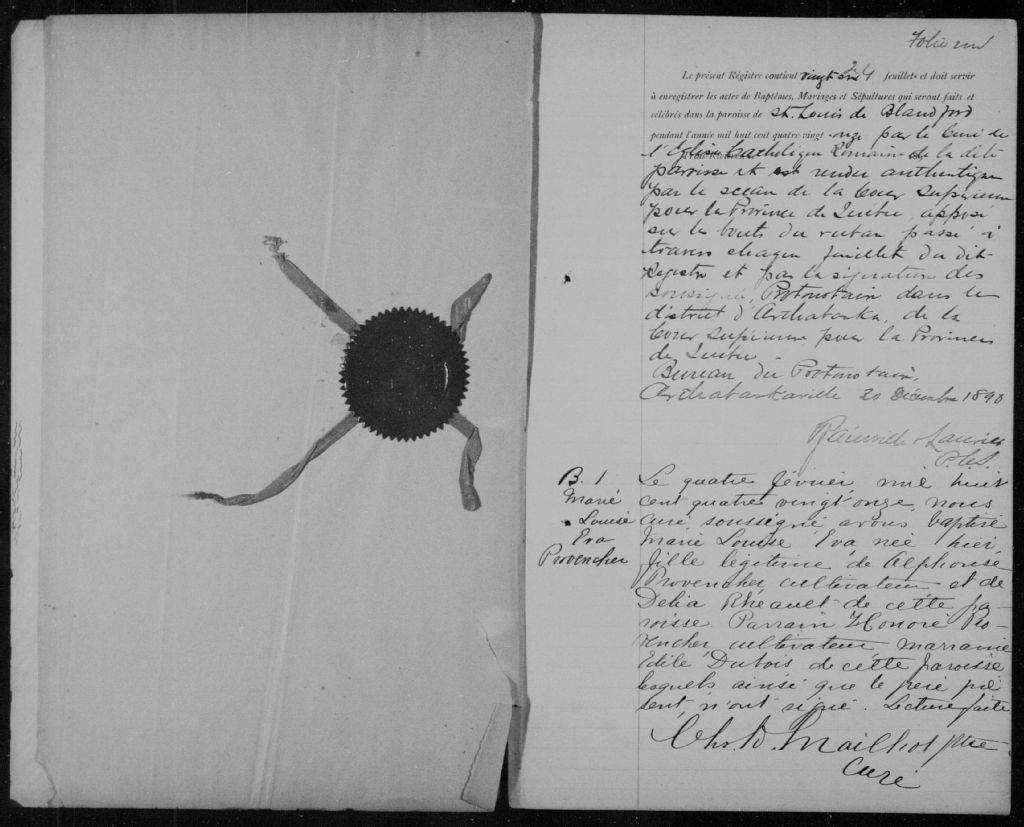 Folio un
Le présent Régistre contient vingt feuillets et doit servir
à enregistrer les actes de Baptêmes, Mariages et Sépultures qui seront faits et
célébrés dans la paroisse de St. Louis de Blandford
pendant l'année mil huit cent quatre-vingt onze par le Curé de
l'Eglise Catholique Romaine de la dite
paroisse et est rendu authentique
par le sceau de la Cour Supérieure
pour la Province de Québec, apposé
sur les bouts du ruban passé à
travers chaque feuillet du dit
Registre et par la signature des
soussignés, Protonotaire dans le
district d'Arthabaska, de la
Cour Supérieure pour la Province
de Québec.
Bureau du Protonotaire,
Arthabaskaville 20 Décembre 1890
Rainville & Laurier
P.C.S.
B. 1
Marie
Louise
Eva
Provencher
Le quatre février mil huit
cent quatre vingt onze, nous
curé soussigné avons baptisé
Marie Louise Eva née hier,
fille légitime de Alphonse
Provencher cultivateur et de
Delia Rhéault de cette pa-
roisse. Parrain Honoré Pro-
vencher cultivateur marraine
Edile Dubois de cette paroisse
lesquels ainsi que le père pré
sent, n'ont signé. Lecture faite
Chs. D. Mailhot ptre
Curé